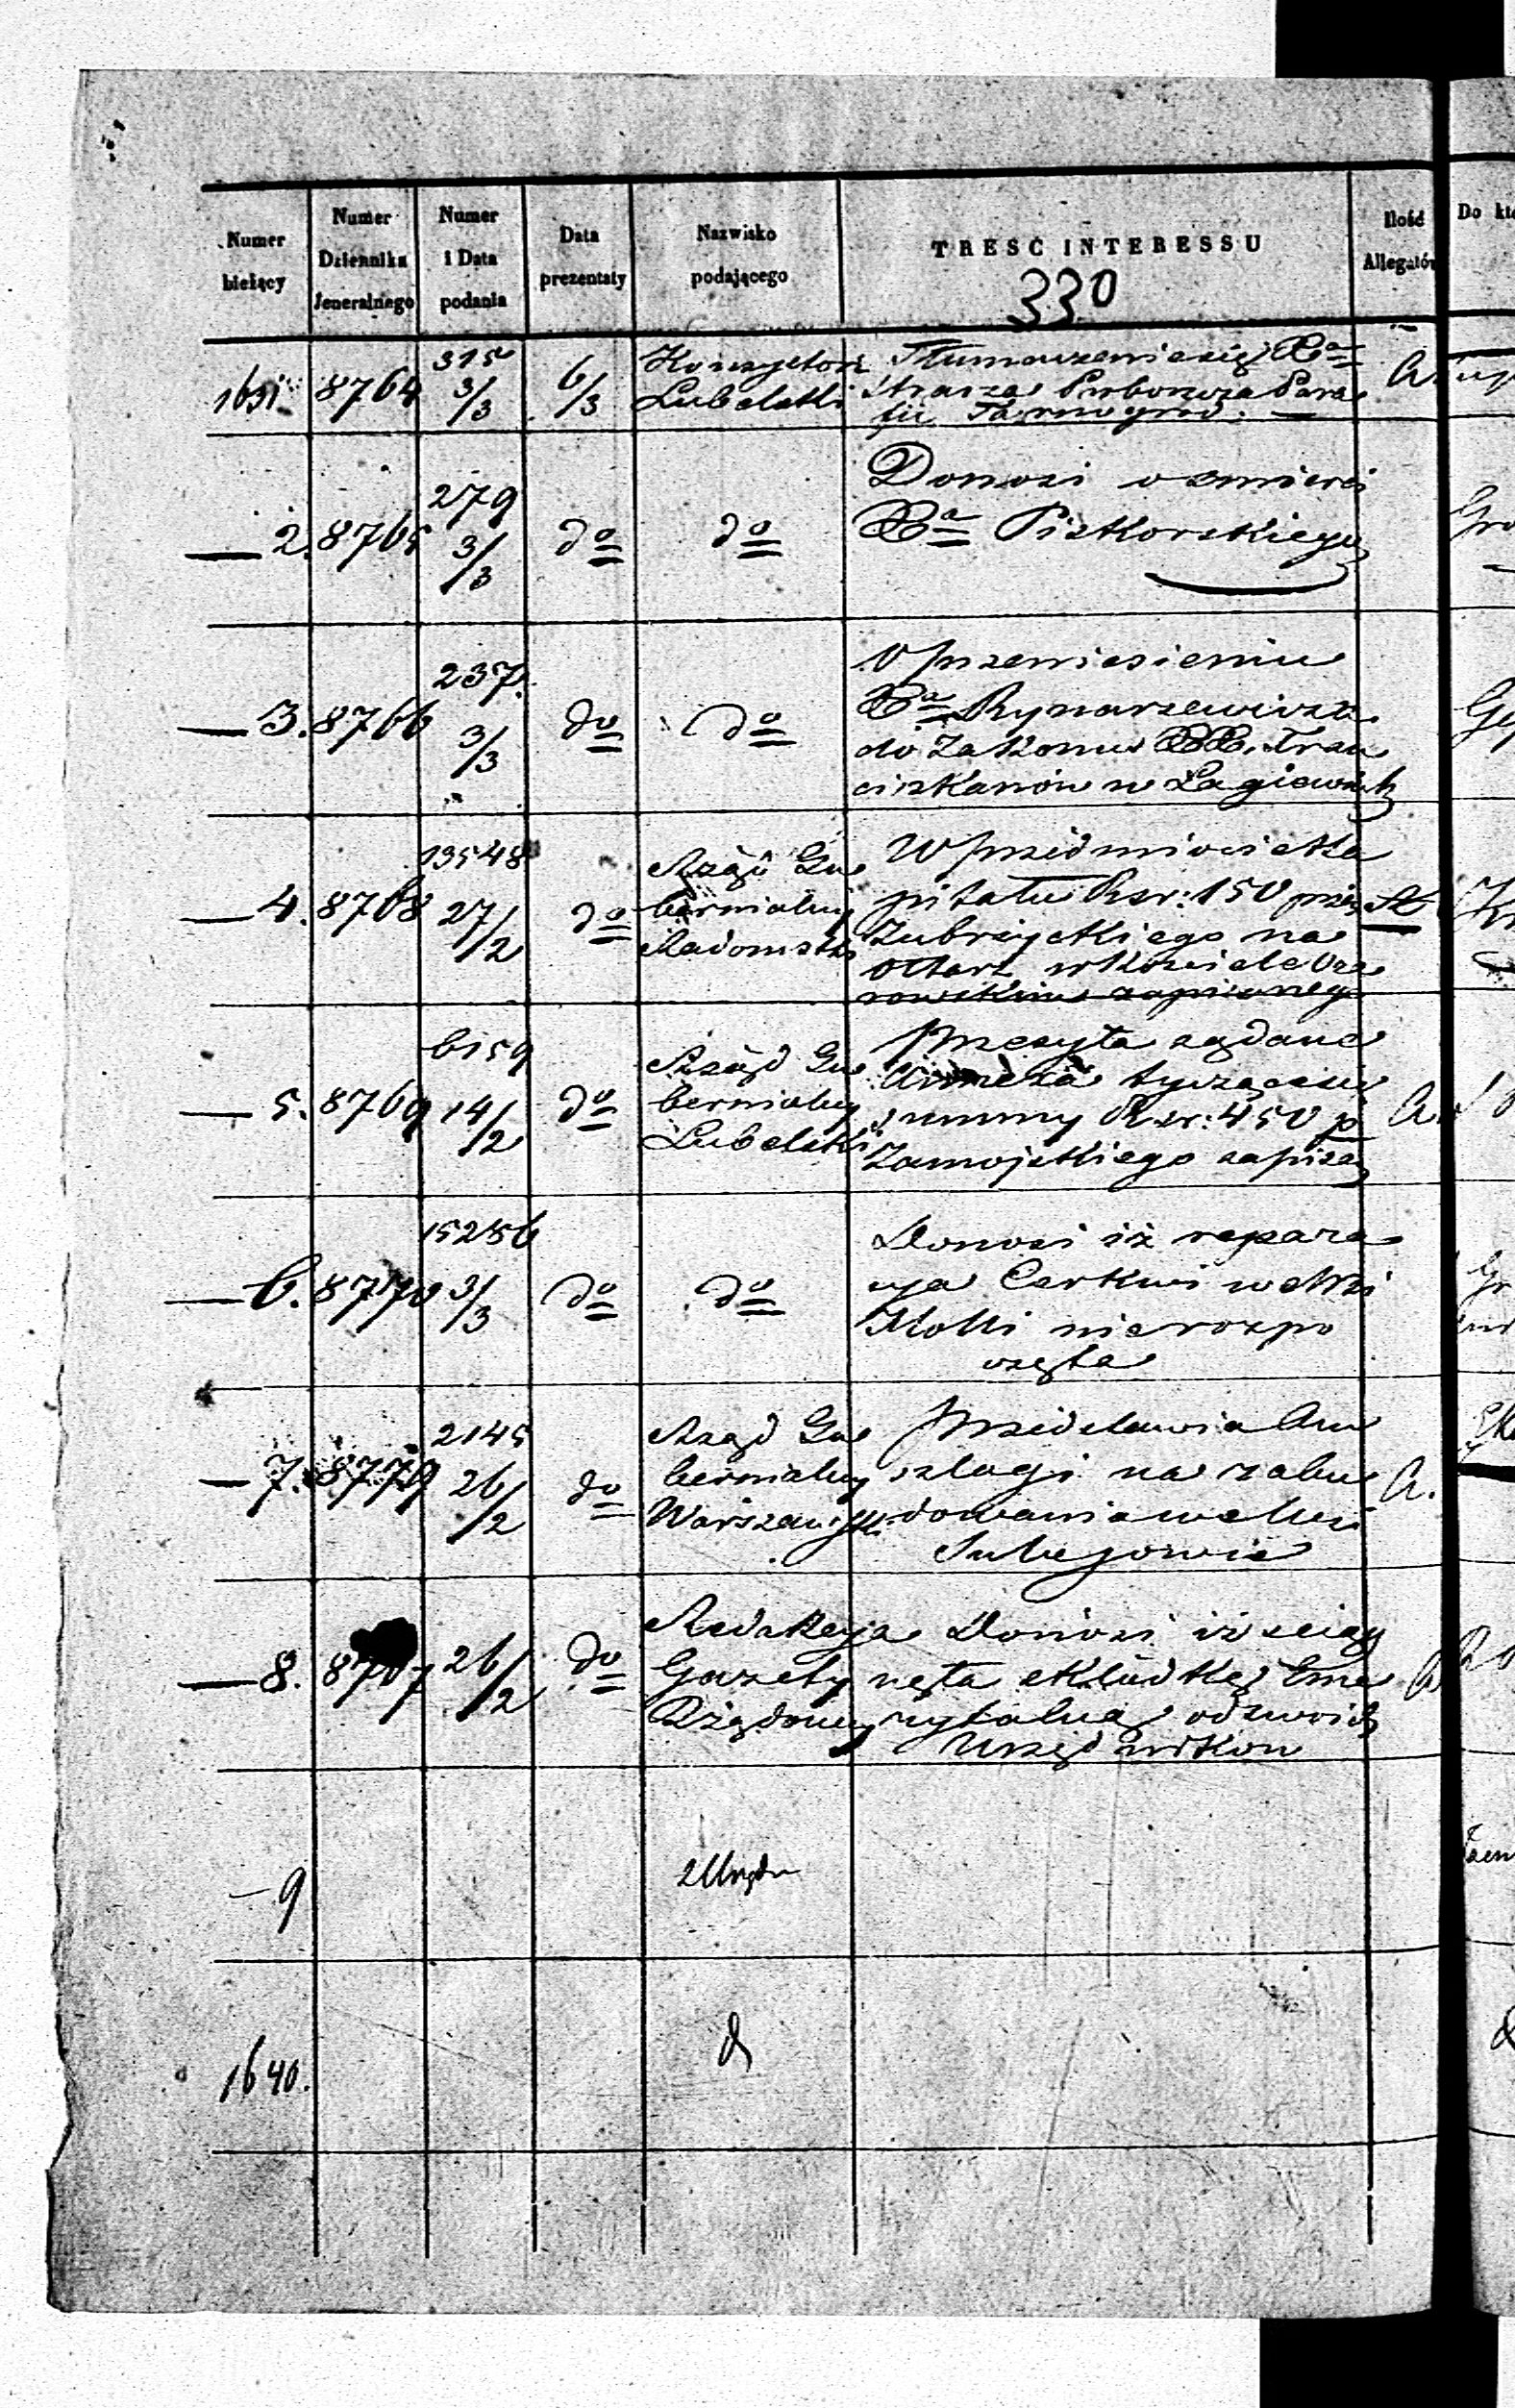 Numer bieżący
Numer Dziennika Jeneralnego
Numer i Data podania
Data prezentaty
Nazwisko podającego
TREŚĆ INTERESSU
Ilość Allegatów
330
1631 8764 315 3/3 6/3
Lubelski
Tłumaczenie się Xa
Proboszcza Para
fii Tarnogród.
2. 8765 279 3/3 do do
Donosi o smierci
Xa Piskorskiego
3. 8766 237. 3/3 do do
O przeniesieniu
Xa Rynarzewicza
do Zakonu XX. Fran
ciszkanów w Łagiewnik
4. 8768 13548 27/2 do
Rząd Gu
bernialny
Radomski
W przedmiocie Ka
pitału Rsr: 150 przez
Zubrzyckiego na
Ołtarz w Kościele
zapisanego
5. 8769 6159 14/2 do
Rząd Gu
bernialny
Lubelski
Przesyła żądane
tyczące się
summy Rsr: 450 p
Zamojskiego zapisa
A.
6. 8770 15286 3/3 do do
Donosi iż repara
cya Cerkwi we Wsi
nierozpo
częta
7. 8779 2145 26/2 do
Rząd Gu
bernialny
Warszawski
Przedstawia An
szlagi na zabu
dowania we Wsi
A.
8. 26/2 do
Redakcya
Gazety
Rządowej
Donosi iż sciąg
nęła składkę Eme
rytalną od swoich
Urzędników
9
z Urzędu
1640.
d